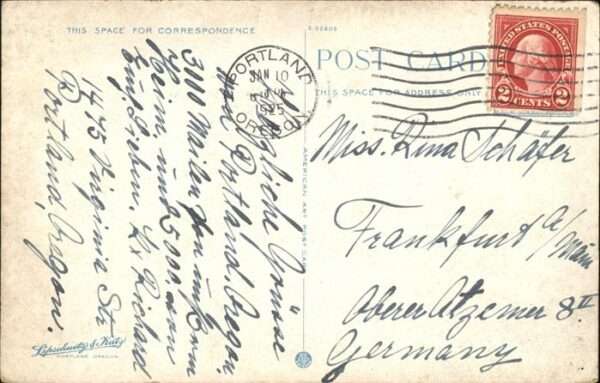 THIS SPACE FOR CORRESPONDENCE
POST CARD
THIS SPACE FOR ADDRESS ONLY
PORTLAND
JAN 10
1925
OREGON
UNITED STATES POSTAGE
2 CENTS 2
Herzliche Grüsse
aus Portland, Oregon,
3110 Meilen von
Heim und 5000 von
Lieben. Richard
475 Virginia Str.
Portland, Oregon.
Miss. Rina Schäfer
Frankfurt a/Main
Oberer Atzemer 8 II
Germany
Lipschuetz & Katz
PORTLAND, OREGON